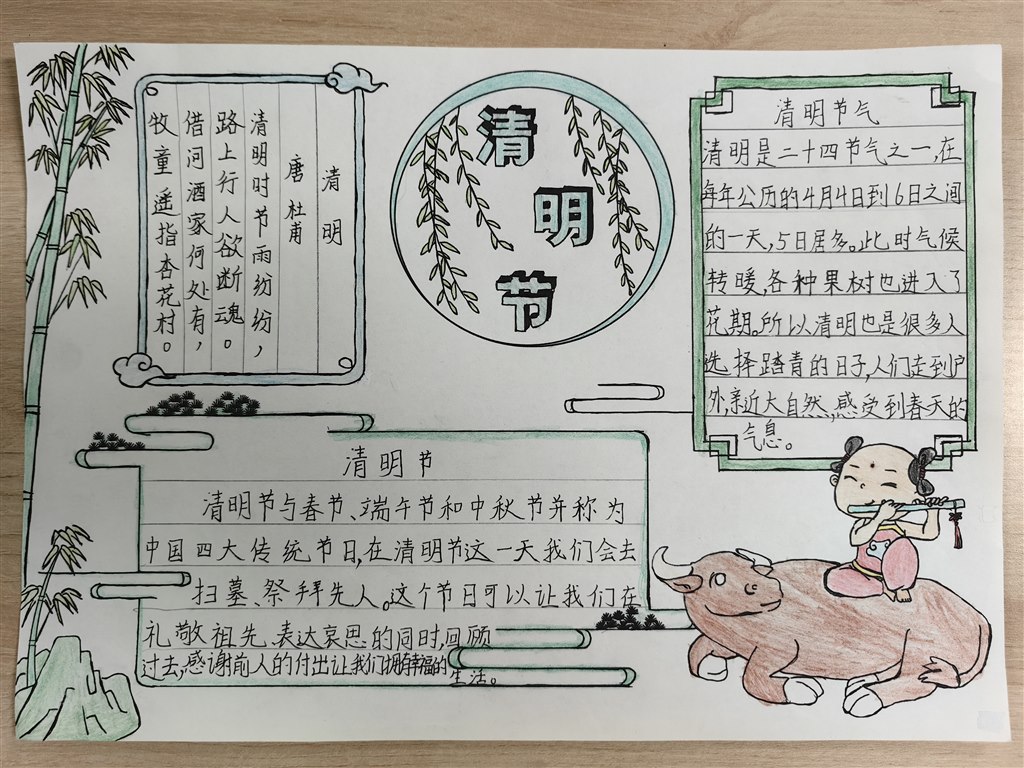 清明
唐 杜甫
清明时节雨纷纷，
路上行人欲断魂。
借问酒家何处有，
牧童遥指杏花村。
清
明
节
清明节气
清明是二十四节气之一，在
每年公历的4月4日到6日之间
的一天，5日居多。此时气候
转暖，各种果树也进入了
花期。所以清明也是很多人
选择踏青的日子，人们走到户
外，亲近大自然，感受到春天的
气息。
清明节
清明节与春节、端午节和中秋节并称为
中国四大传统节日，在清明节这一天我们会去
扫墓、祭拜先人。这个节日可以让我们在
礼敬祖先、表达哀思的同时，回顾
过去，感谢前人的付出让我们拥有幸福的
生活。